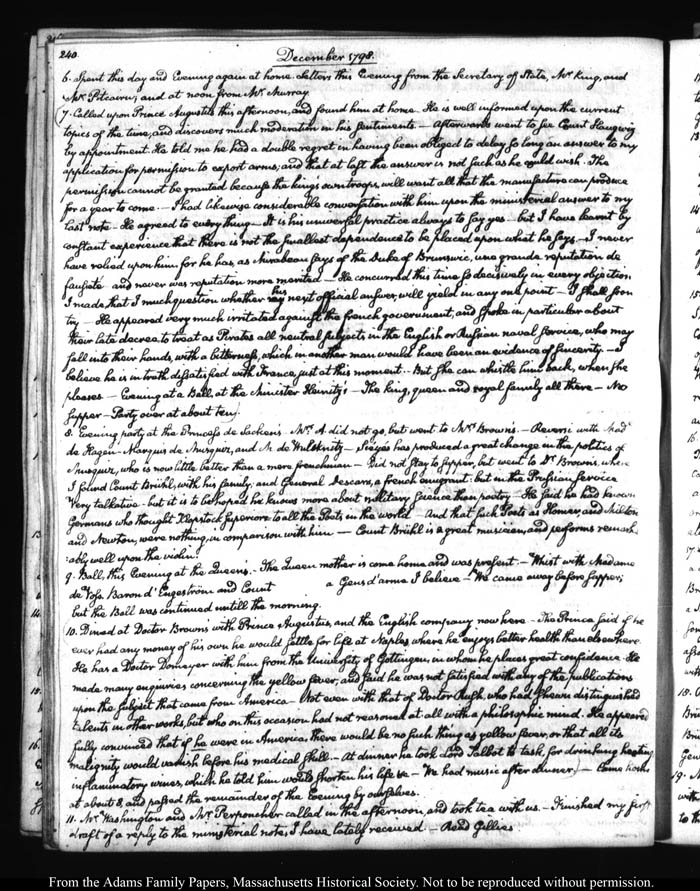 240
December 1798.
6. Spent this day and Evening again at home. Letters this Evening from the Secretary of State, Mr King, and
Mr Pitcairn; and at noon from Mr Murray
7. Called upon Prince Augustus this afternoon, and found him at home. He is well informed upon the current
topics of the time, and discovers much moderation in his sentiments. — Afterwards went to see Count Haugwitz
by appointment. He told me he had a double regret in having been obliged to delay so long an answer to my
application for permission to export arms; and that at last the answer is not such as he could wish. The
permission cannot be granted because the king's own troops, will want all that the manufacture can produce
for a year to come. — I had likewise considerable conversation with him upon the ministerial answer to my
last note — He agreed to every thing — It is his universal practice always to say yes — but I have learnt by
constant experience that there is not the smallest dependence to be placed upon what he says. — I never
have relied upon him. for he has, as Mirabeau says of the Duke of Brunswic, une grande reputation de
fausseté and never was reputation more merited — He concurred this time so decisively in every objection
I made, that I much question whether his next official answer, will yield in any one point — I shall soon
try — He appeared very much irritated against the french government, and spoke in particular about
their late decree, to treat as Pirates all neutral subjects in the English or Russian naval service, who may
fall into their hands, with a bitterness, which in another man would have been an evidence of sincerity — I
believe he is in truth dissatisfied with France, just at this moment. But she can whistle him back, when she
pleases — Evening at a Ball, at the Minister Heinitz's — The king, queen and royal family all there — No
supper — Party over at about ten.
8. Evening party at the Princess de Sacken's. Mrs A did not go, but went to Mrs Brown's. — Reversi with Made
de Hagen — Marquis de Musquiz, and M. de — Sieyès has produced a great change in the politics of
Musquiz, who is now little better than a mere frenchman — Did not stay to supper, but went to Dr Brown's, where
I found Count Brühl, with his family, and General Descars, a french emigrant but in the Prussian service
Very talkative. but it is to be hoped he knows more about military science than poetry — He said he had known
Germans who thought Klopstock superiore to all the Poets in the world — And that such Poets as Homer, and Milton
and Newton, were nothing, in comparison with him — Count Brühl is a great musician, and performs remark
:ably well upon the violin.
9. Ball, this Evening at the Queen's. The Queen mother is come home, and was present — Whist with Madame
de Voss Baron d'Engeström and Count a Gens d'arme I believe — We came away before supper;
but the Ball was continued untill the morning.
10. Dined at Doctor Brown's with Prince Augustus, and the English company now here — The Prince said if he
ever had any money of his own he would settle for life at Naples, where he enjoys better health than elsewhere
He has a Doctor Domeyer with him from the University of Göttingen, in whom he places great confidence. He
made many enquiries concerning the yellow fever, and said he was not satisfied with any of the publications
upon the subject that came from America — Not even with that of Doctor Rush, who had shewn distinguished
talents in other works, but who on this occasion had not reasoned at all with a philosophic mind. He appeared
fully convinced that if he were in America there would be no such thing as yellow fever, or that all its
malignity would vanish before his medical skill. — At dinner he took Lord Talbot to task, for drinking heating
inflammatory wines, which he told him would shorten his life &c — We had music after dinner, — Came home
at about 8, and passed the remainder of the Evening by ourselves.
11. Mr Washington and Mr Perponcher called in the afternoon, and took tea with us. — Finished my first
draft of a reply to the ministerial note, I have lately received — Read Gillies
From the Adams Family Papers, Massachusetts Historical Society. Not to be reproduced without permission.